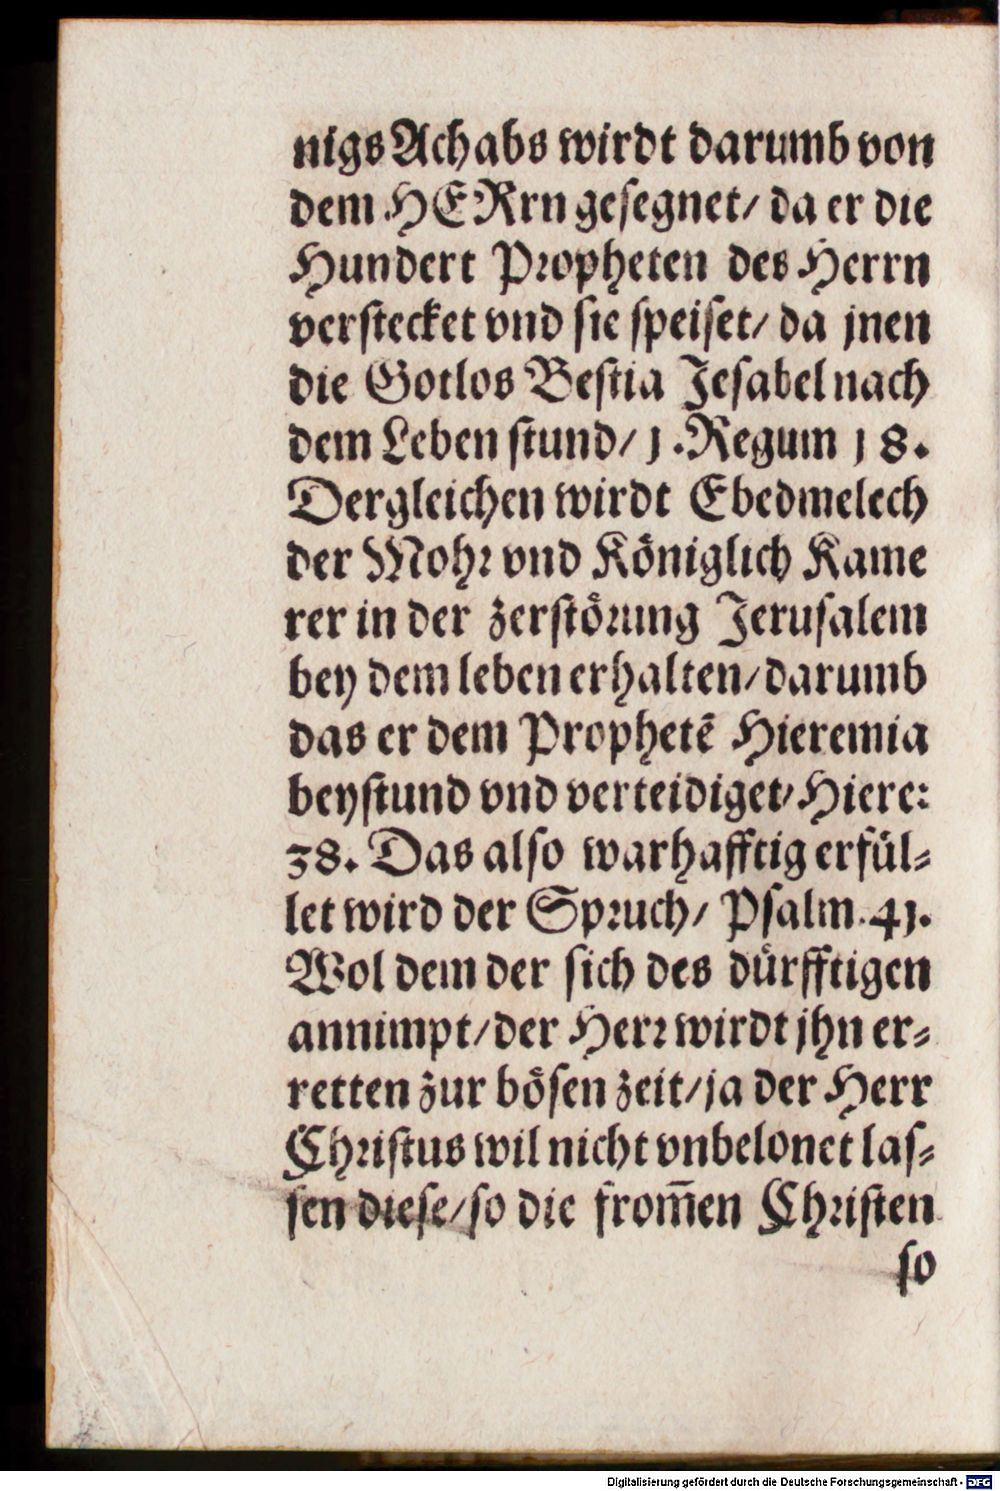 nigs Achabs wirdt darumb von
dem HERrn gesegnet/ da er die
Hundert Propheten des Herrn
verstecket vnd sie speiset/ da jnen
die Gotlos Bestia Jesabel nach
dem Leben stund/ 1. Regum 18.
Dergleichen wirdt Ebedmelech
der Mohr vnd Königlich Kame
rer in der zerstörung Jerusalem
bey dem leben erhalten/ darumb
das er dem Prophetē Hieremia
beystund vnd verteidiget/ Hiere:
38. Das also warhafftig erfül-
let wird der Spruch/ Psalm. 41.
Wol dem der sich des dürfftigen
annimpt/ der Herr wirdt jhn er-
retten zur bösen zeit/ ja der Herr
Christus wil nicht vnbelonet las-
sen diese/ so die from̄en Christen
so
Digitalisierung gefördert durch die Deutsche Forschungsgemeinschaft - DFG